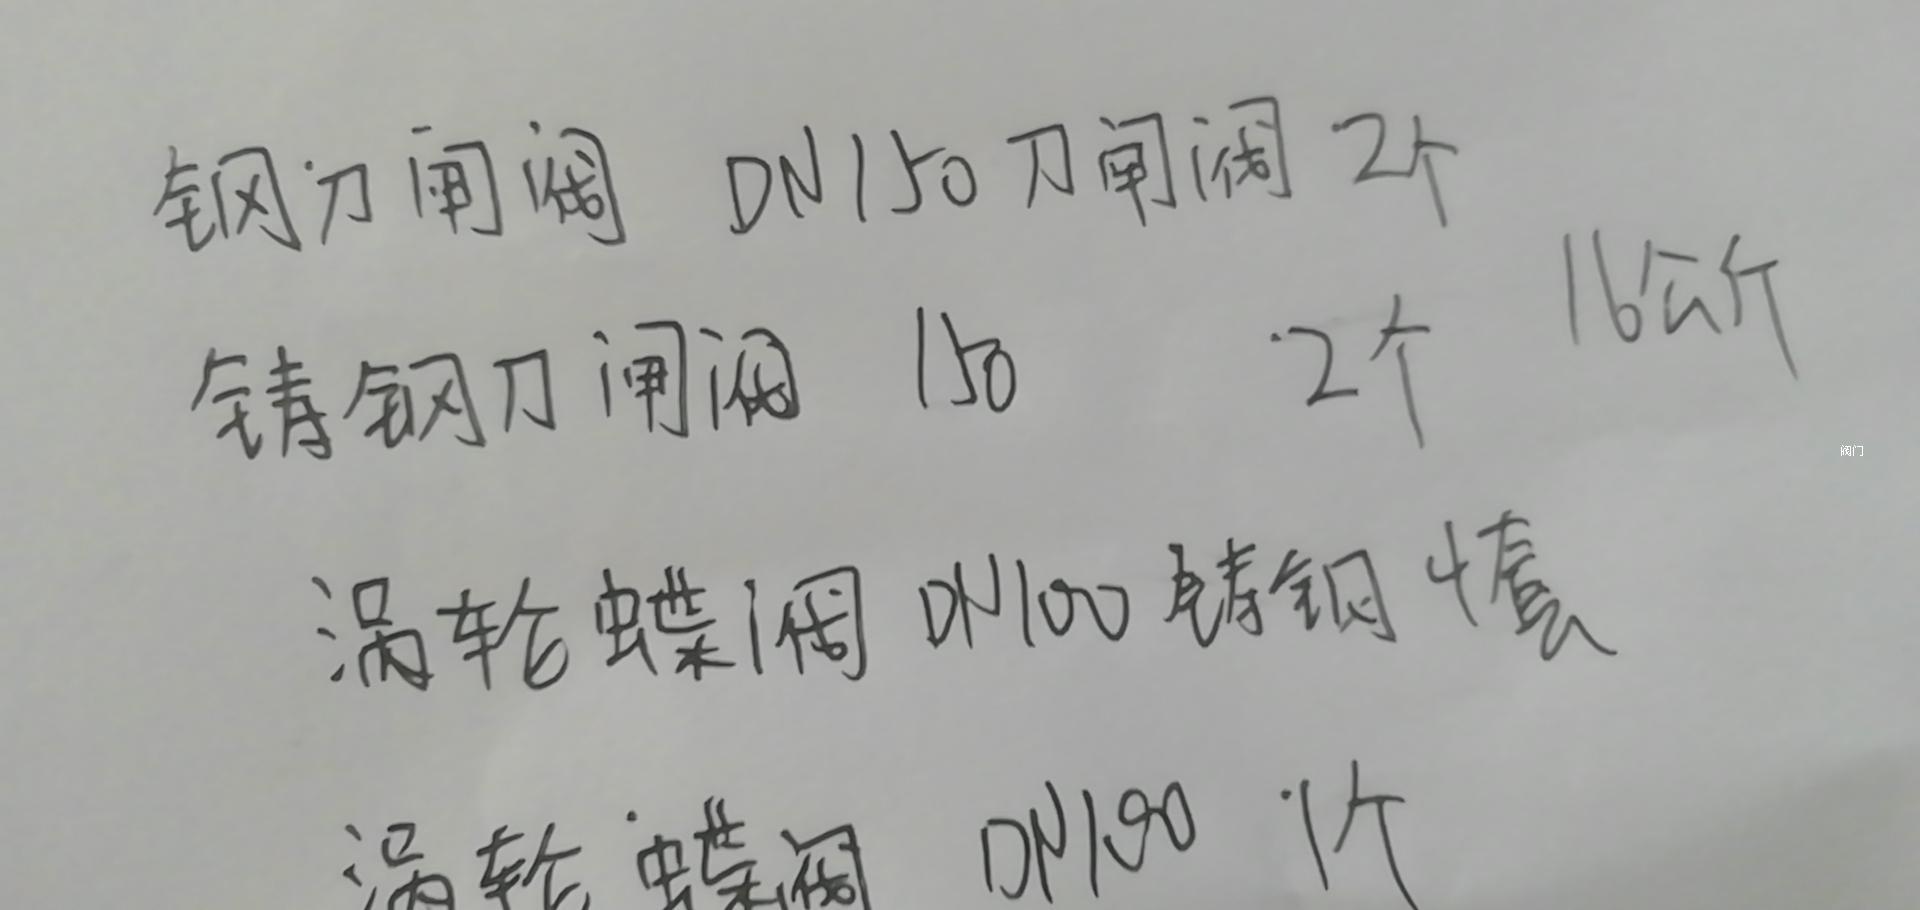 钢刀闸阀 DN150刀闸阀 2个
铸钢刀闸阀 150 2个 16公斤
阀门
涡轮蝶阀 DN100 铸钢 4套
涡轮蝶阀 DN100 1个